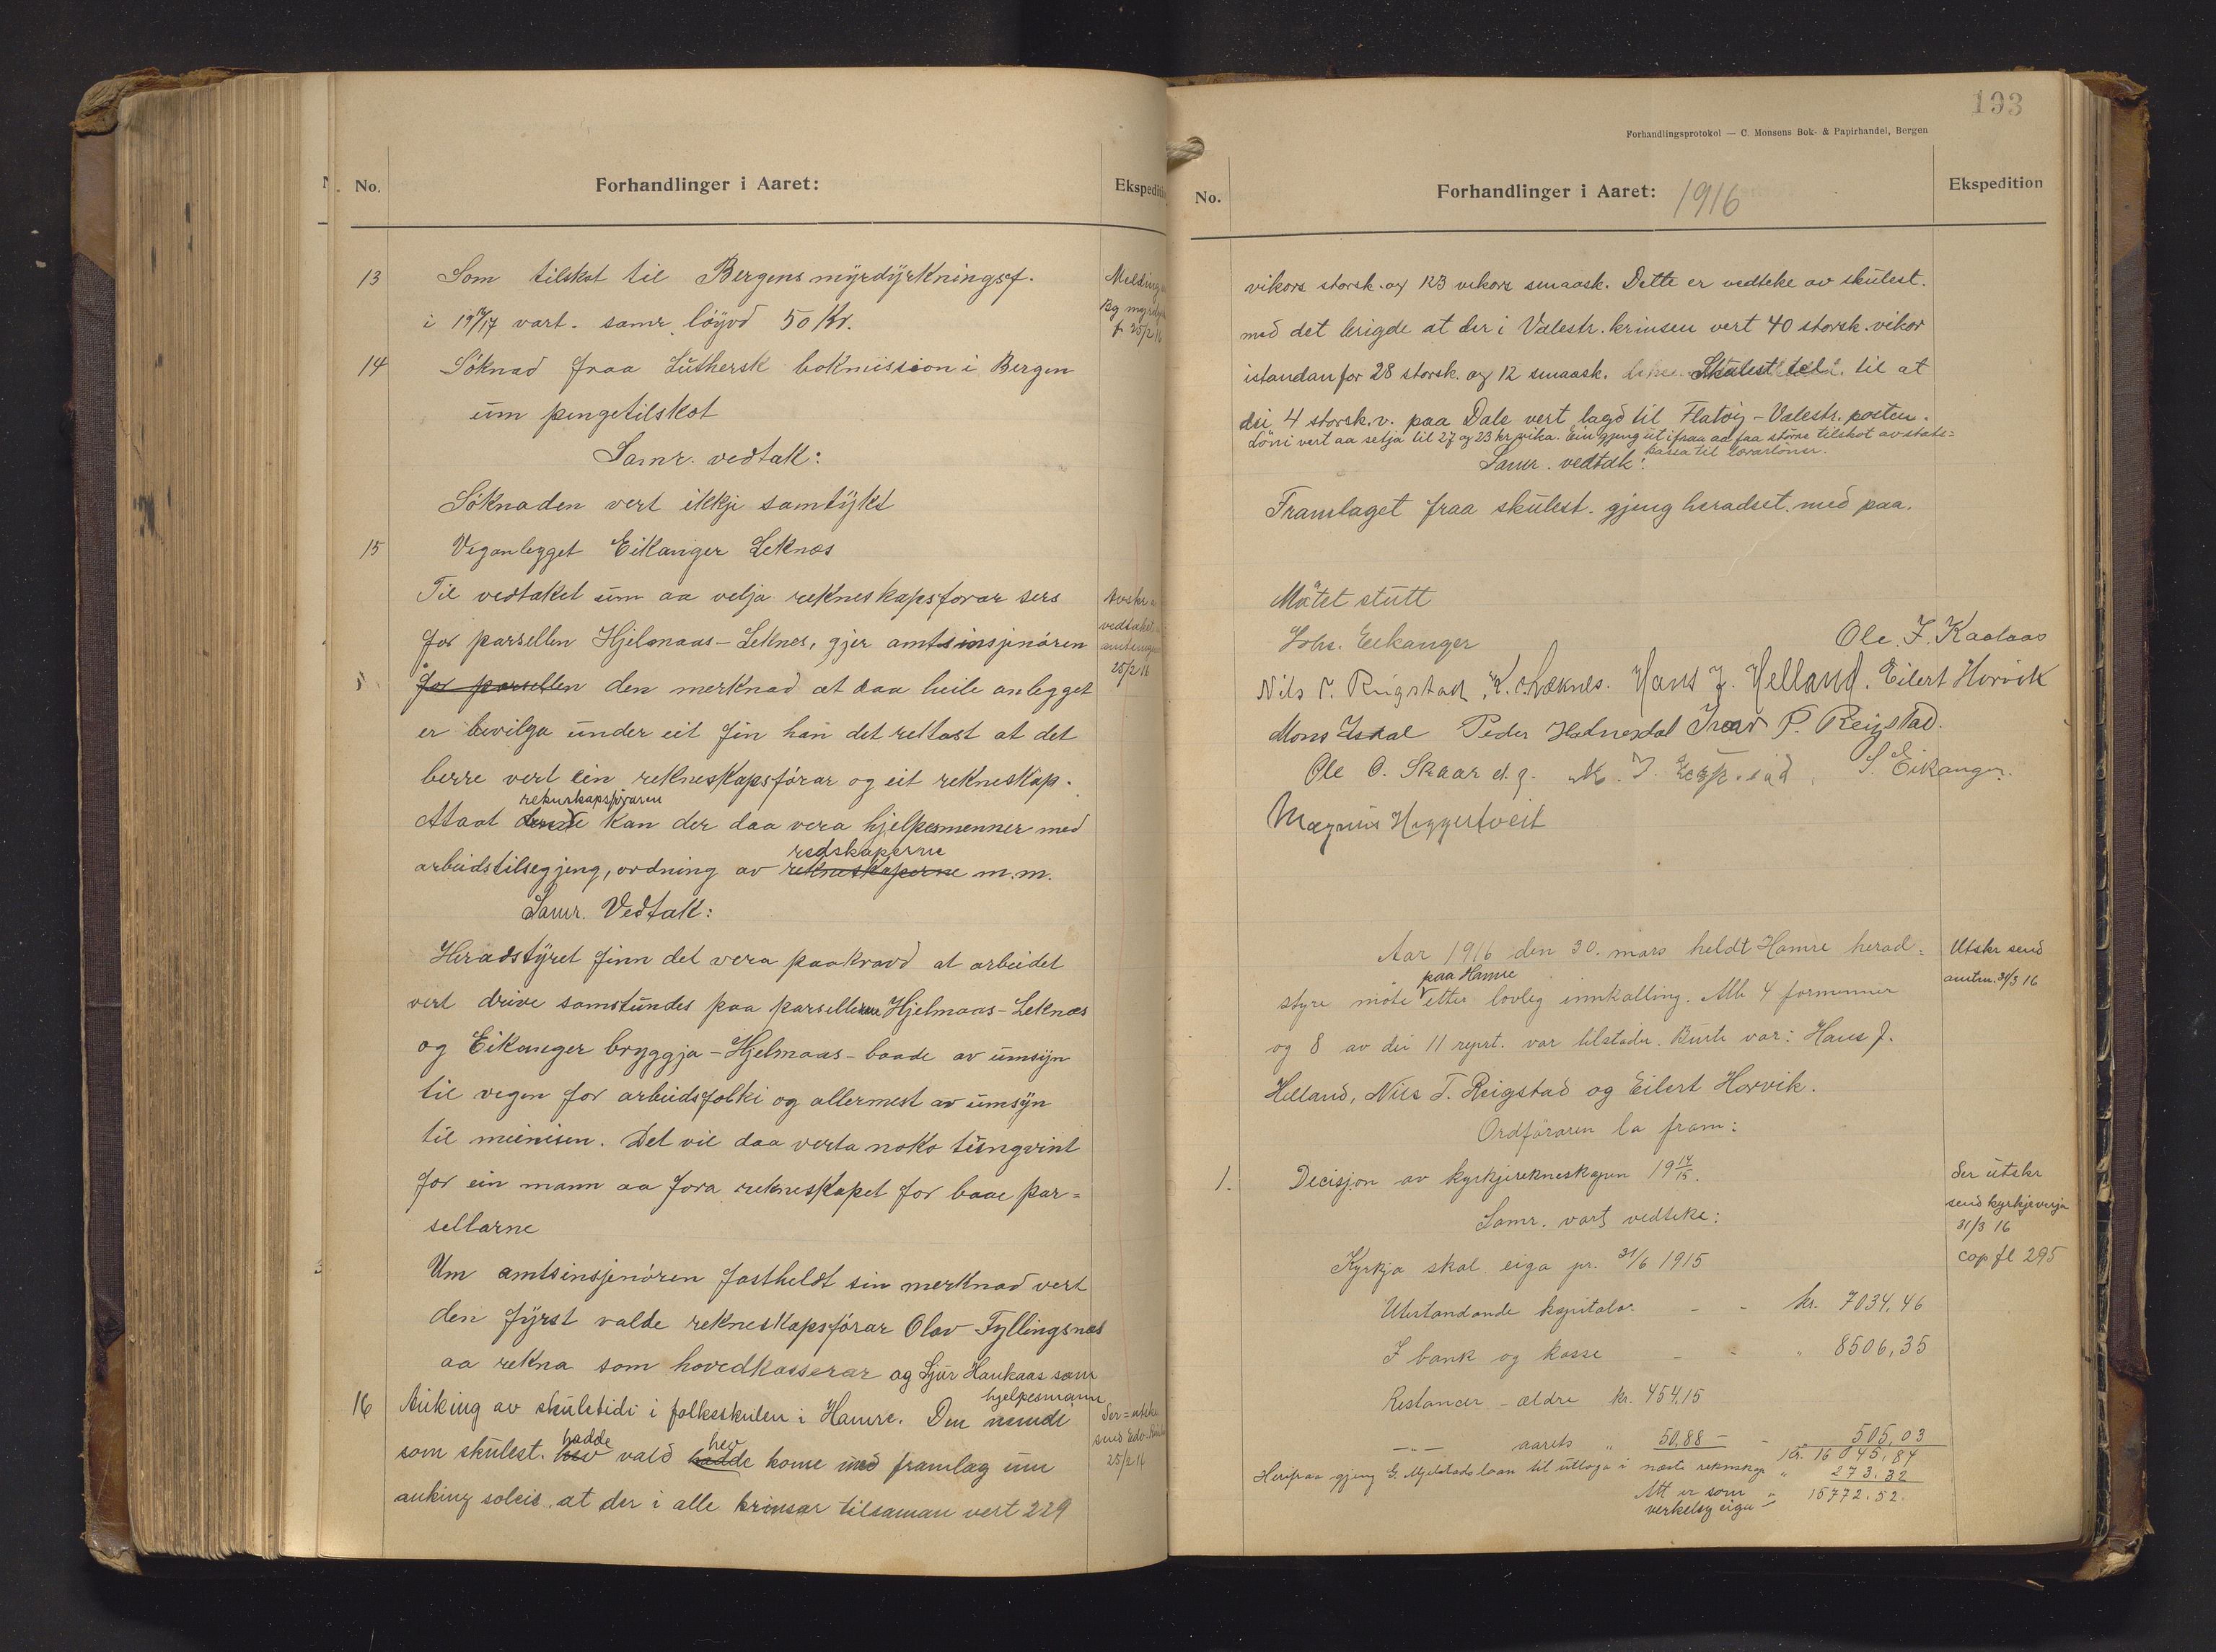 No. Forhandlinger i Aaret: Ekspedition
13 Som tilskot til Bergens myrdyrkningsf. Melding
i 1916/17 vart. samr. löyvd 50 Kr. Bg myrdyrk
f 25/2 16
14 Söknad fraa Luthersk bokmission i Bergen
um pengetilskot
Samr. vedtak:
Söknaden vert ikkje samtykt
15 Veganlegget Eikanger Leknes
Til vedtaket um aa velja rekneskapsförar sers Avskr
for parsellen Hjelmaas-Leknes, gjer amtsinsjenören vedtaket
for parsellen den merknad at daa heile anlegget 25/2 16
er bevilga under eit fin han det rettast at det
berre vert ein rekneskapsförar og eit rekneskap.
rekneskapsföraren
Ataat denne kan der daa vera hjelpesmenner med
redskaperne
arbeidstilsegjeng, ordning av rekneskaperne m.m.
Samr. Vedtak:
Heradstyret finn det vera paakravd at arbeidet
vert drive samstundes paa parsellerne Hjelmaas-Leknes
og Eikanger bryggja-Hjelmaas-baade av umsyn
til vegen for arbeidsfolki og allermest av umsyn
til meinisen. Det vil daa verta noko tungvint
for ein mann aa föra rekneskapet for baae par=
sellarne
Um amtsinsjenören fastheldt sin merknad vert
den fyrst valde rekneskapsförar Olav Fyllingsnes
aa rekna som hovedkasserar og Sjur Haukaas som
hjelpesmann
16 Auking av skuletidi i folkeskulen i Hamre. Den nemdi Ser=utskr
hadde hev
som skulest. hev vald hadde kome med framlag um 25/2 16
auking soleis, at der i alle krinsar tilsaman vert 229
193
Forhandlingsprotokol — C. Monsens Bok- & Papirhandel, Bergen
No. Forhandlinger i Aaret: 1916 Ekspedition
vikors storsk. og 123 vikors smaask. Dette er vedteke av skulest.
med det brigde at der i Valestr. krinsen vert 40 storsk. vikor
istandanfor 28 storsk. og 12 smaask. Skulest. til at
dei 4 storsk. v. paa Dale vert lagd til Flatöy-Valestr. posten.
Löni vert aa setja til 27 og 23 kr. vika. Ein gjeng ut ifraa aa faa större tilskot av stats=
kassa til lærarlöner.
Samr. vedtak:
Framlaget fraa skulest. gjeng heradst. med paa.
Mötet slutt
Johs. Eikanger Ole. J. Kaalaas
Nils T. Reigstad, K. Leknes. Hans J. Helland. Eilert Horvik
Mons Isdal Peder Halnesdal Ivar P. Reigstad.
Ole O. Skaar d.y. S. Eikanger.
Magnus Haggertveit
Aar 1916 den 30. mars heldt Hamre herad= Utskr send
paa Hamre
styre möte etter lovleg innkalling. Alle 4 formenner amtm. 31/3 16
og 8 av dei 11 reprt. var tilstades. Burte var: Hans J.
Helland, Nils T. Reigstad og Eilert Horvik.
Ordföraren la fram:
1. Decisjon av kyrkjerekneskapen 1914/15. Ser utskr
send kyrkjeverja
Samr. vart vedteke: 31/3 16
Kyrkja skal eiga pr. 31/6 1915 cop fl 295
Utestandande kapitalar - - kr. 7034,46
I bank og kasse - - " 8506,35
Restancer - ældre kr. 454,15
—"— aarets " 50,88 - - 505,03
kr. 16 045,84
Herifraa gjeng G. Mjelstads laan til utlaga i næste reknskap " 273.32
Att er som " 15772.52.
verkeleg eige